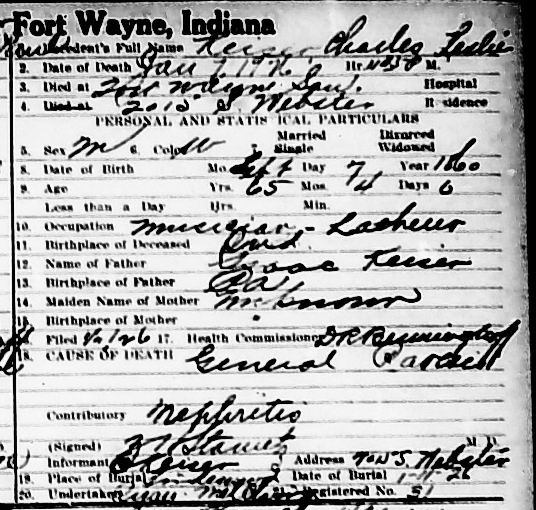 Fort Wayne, Indiana
Decedent's Full Name Keiser Charles Leslie
2. Date of Death Jan Hr. M.
3. Died at Fort Wayne Ind. Hospital
4. Died at S. Webster Residence
PERSONAL AND STATISTICAL PARTICULARS
Married Divorced
5. Sex M 6. Color W 7. Single Widowed
8. Date of Birth Mo. Sept Day 7 Year 1860
9. Age Yrs. 65 Mos. 4 Days 6
Less than a Day Hrs. Min.
10. Occupation Musician - Teacher
11. Birthplace of Deceased Ind.
12. Name of Father Isaac Keiser
13. Birthplace of Father Pa
14. Maiden Name of Mother Unknown
15. Birthplace of Mother
16. Filed 17. Health Commissioner
18. CAUSE OF DEATH General
Contributory Nephritis
(Signed) M. D.
Informant Keiser Address S. Webster
19. Place of Burial Lindenwood Date of Burial
20. Undertaker Registered No. 31